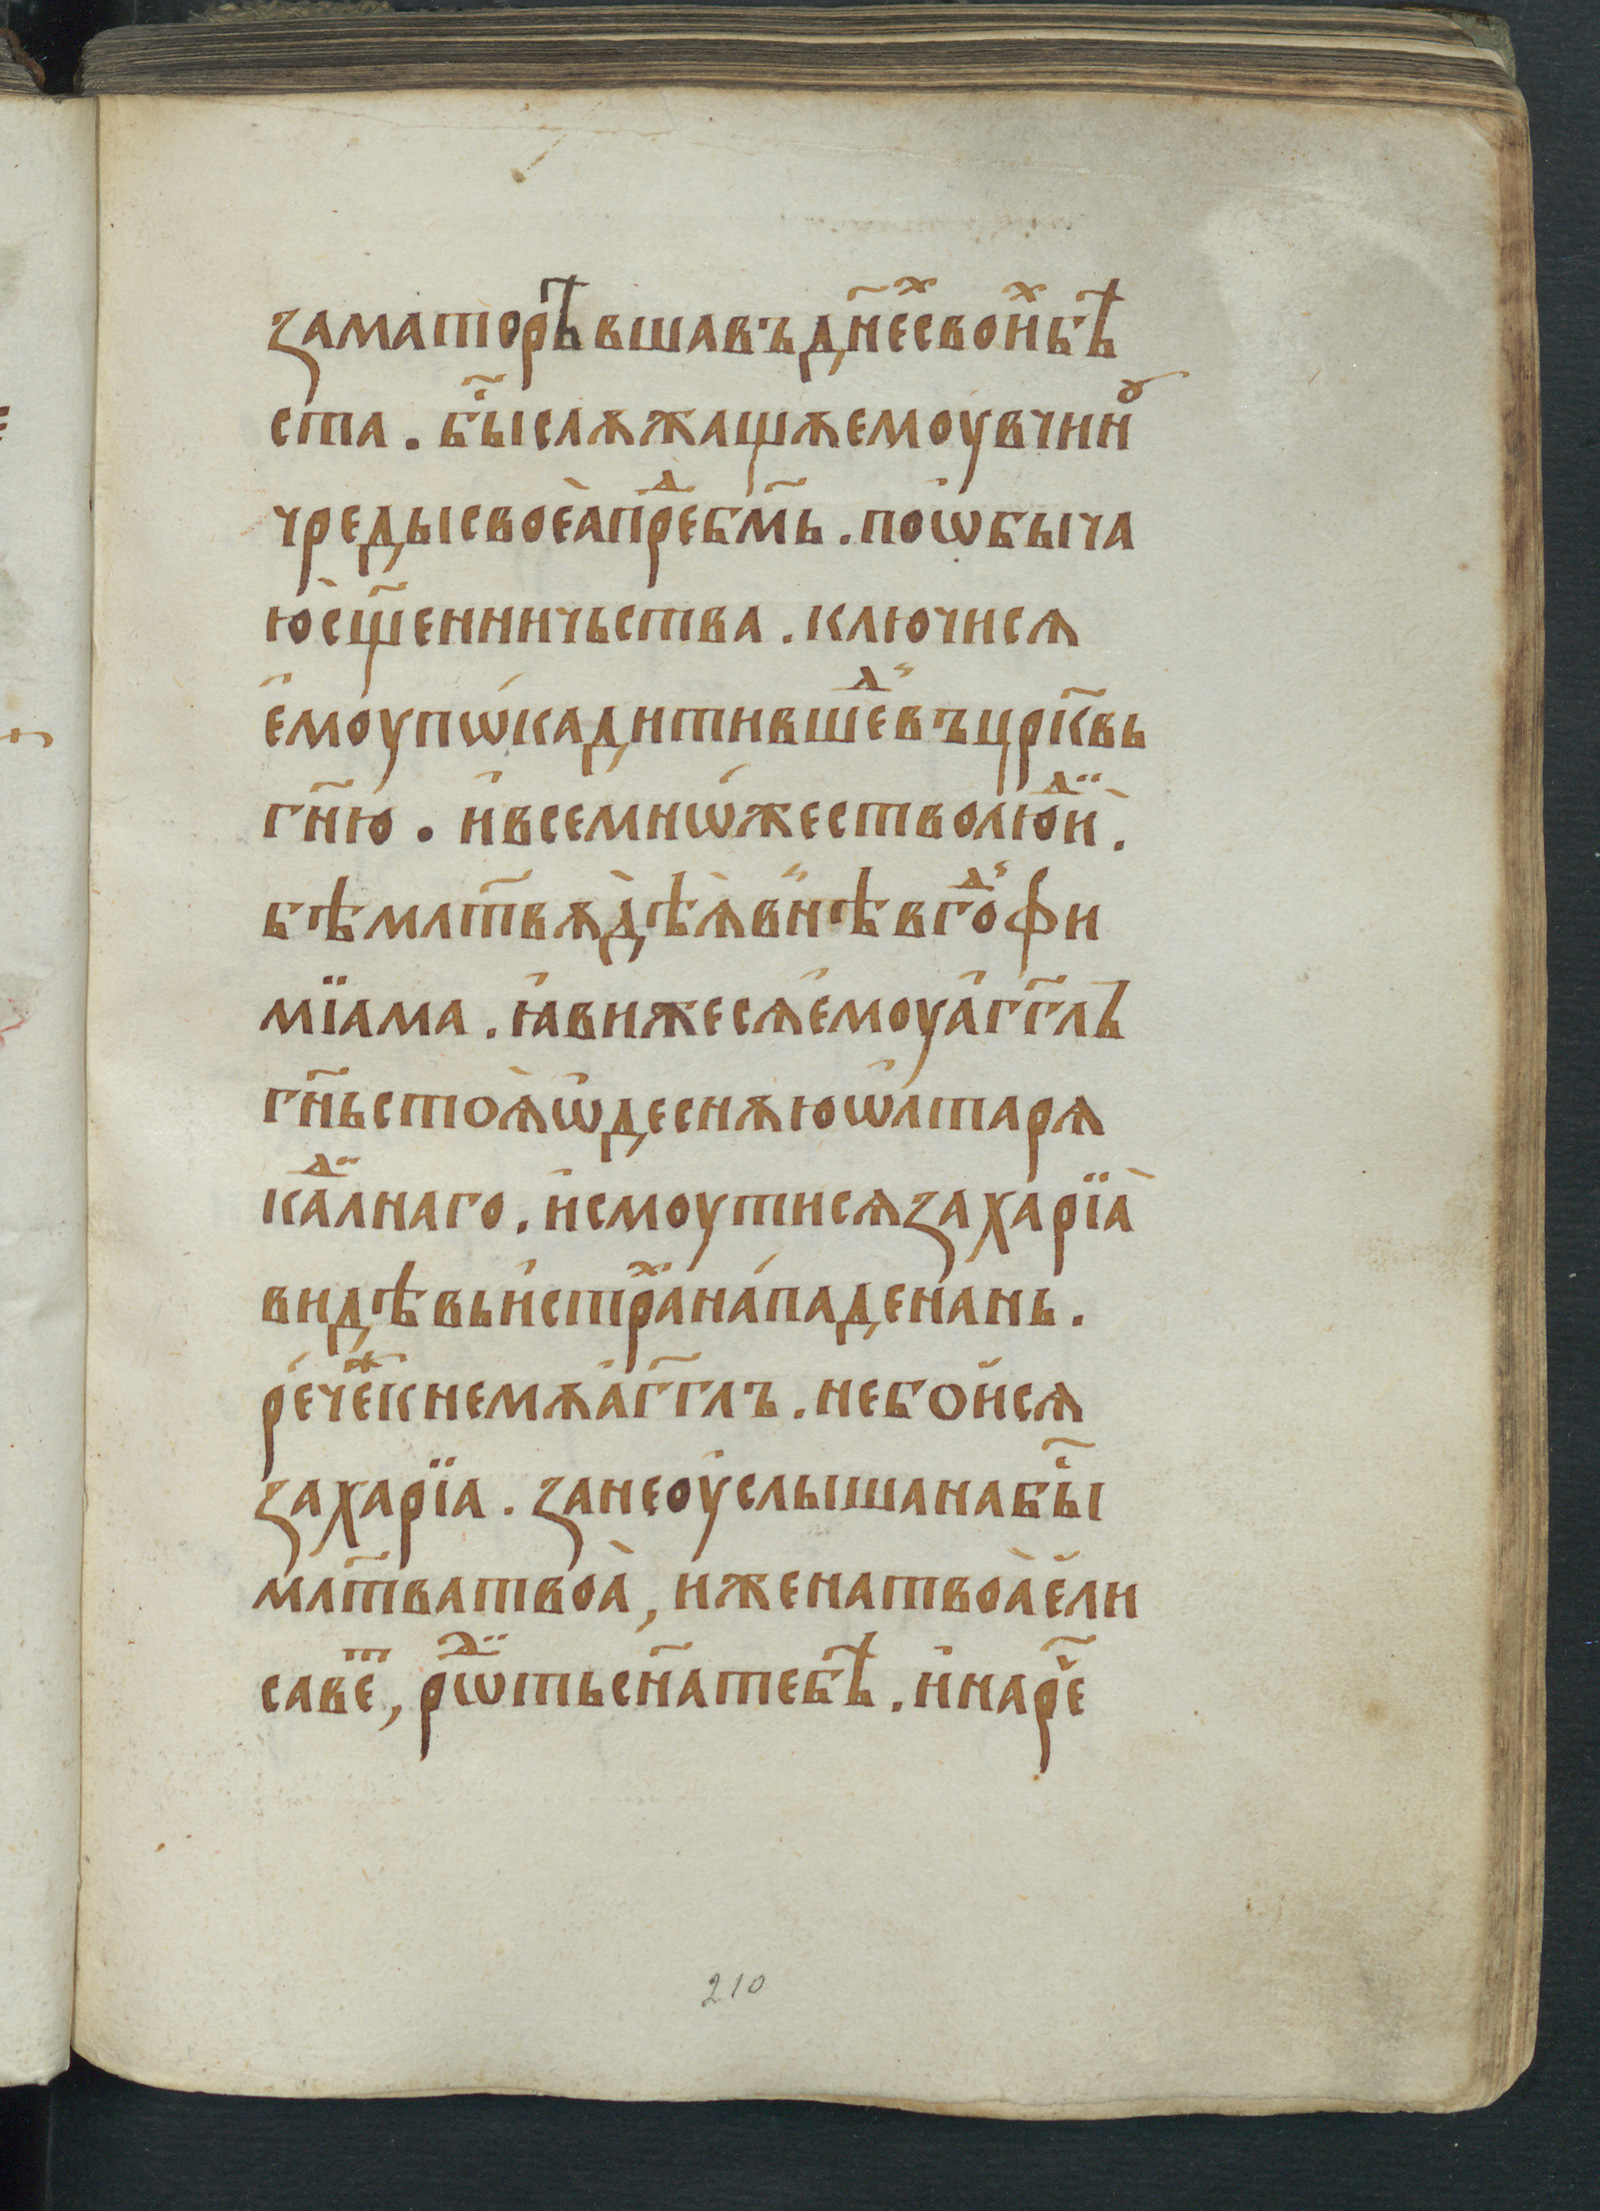 заматорѣвшавъдн҃еⷯсвоиⷯбѣ
ста . бы҃слѫжащѫемоувчинꙋ
чредысвоеѧ̀преⷣбм҃ь . поѡбыча
юсщ҃енничьства . ключисѧ
емоупѡкадитившеⷣвъцр҃квь
гн҃ю . ивсемнѡжестволюⷣи .
бѣмлт҃вѫдѣѧ̀внѣвгоⷣфи
мїама . ꙗвижесѧемоуаг҃глъ
гн҃ьстоѧ̀ѡдеснѫюѡлтарѧ
каⷣлнаго . исмоутисѧзахарїа
видѣвьистраⷯнападенань .
речеⷤкнемѫаг҃глъ . небоисѧ
захарїа . занеоуслышанабы҃
млт҃ватвоа̀ , иженатвоа̀ели
савеⷮ , рѡⷣтьсн҃атебѣ . инаре҃
210